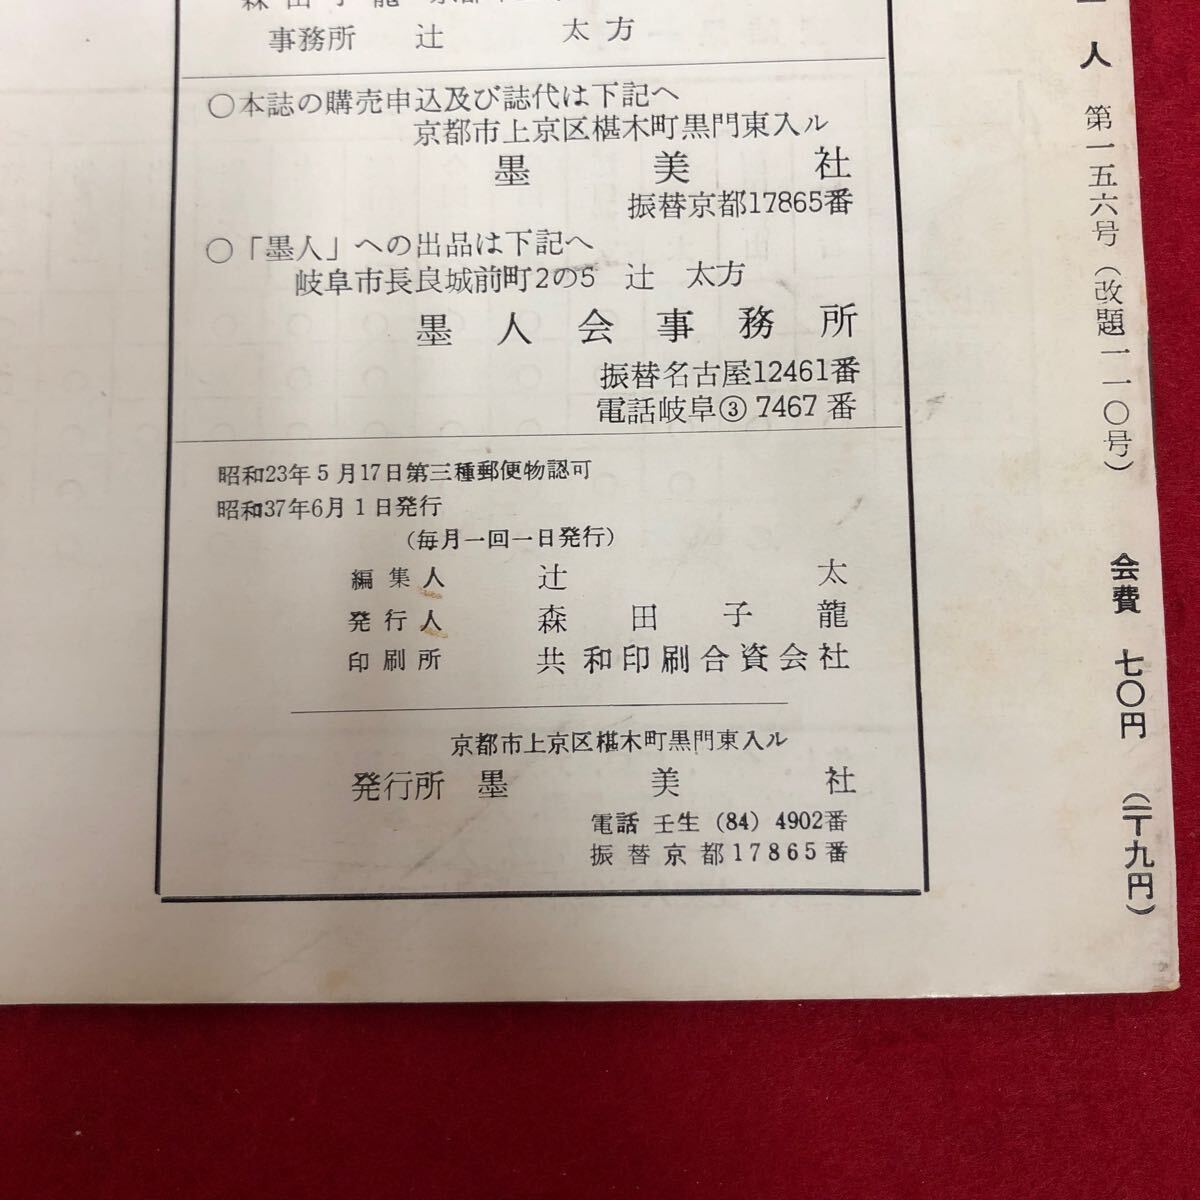 事務所 辻 太方
○本誌の購売申込及び誌代は下記へ
京都市上京区椹木町黒門東入ル
墨美社
振替京都17865番
○「墨人」への出品は下記へ
岐阜市長良城前町2の5 辻 太方
墨人会事務所
振替名古屋12461番
電話岐阜③7467番
昭和23年5月17日第三種郵便物認可
昭和37年6月1日発行
(毎月一回一日発行)
編集人 辻 太
発行人 森田子龍
印刷所 共和印刷合資会社
京都市上京区椹木町黒門東入ル
発行所 墨美社
電話 壬生 (84) 4902番
振替京都17865番
人 第一五六号(改題一一〇号) 会費 七〇円